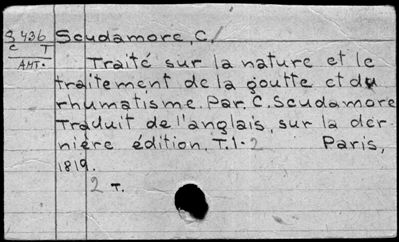 S 436 Scudamore, C.
C T
AMT. Traité sur la nature et le
traitement de la goutte et du
rhumatisme. Par C. Scudamore
Traduit de l'anglais, sur la der
nière édition. T. 1-2 Paris,
1819.
2 T.